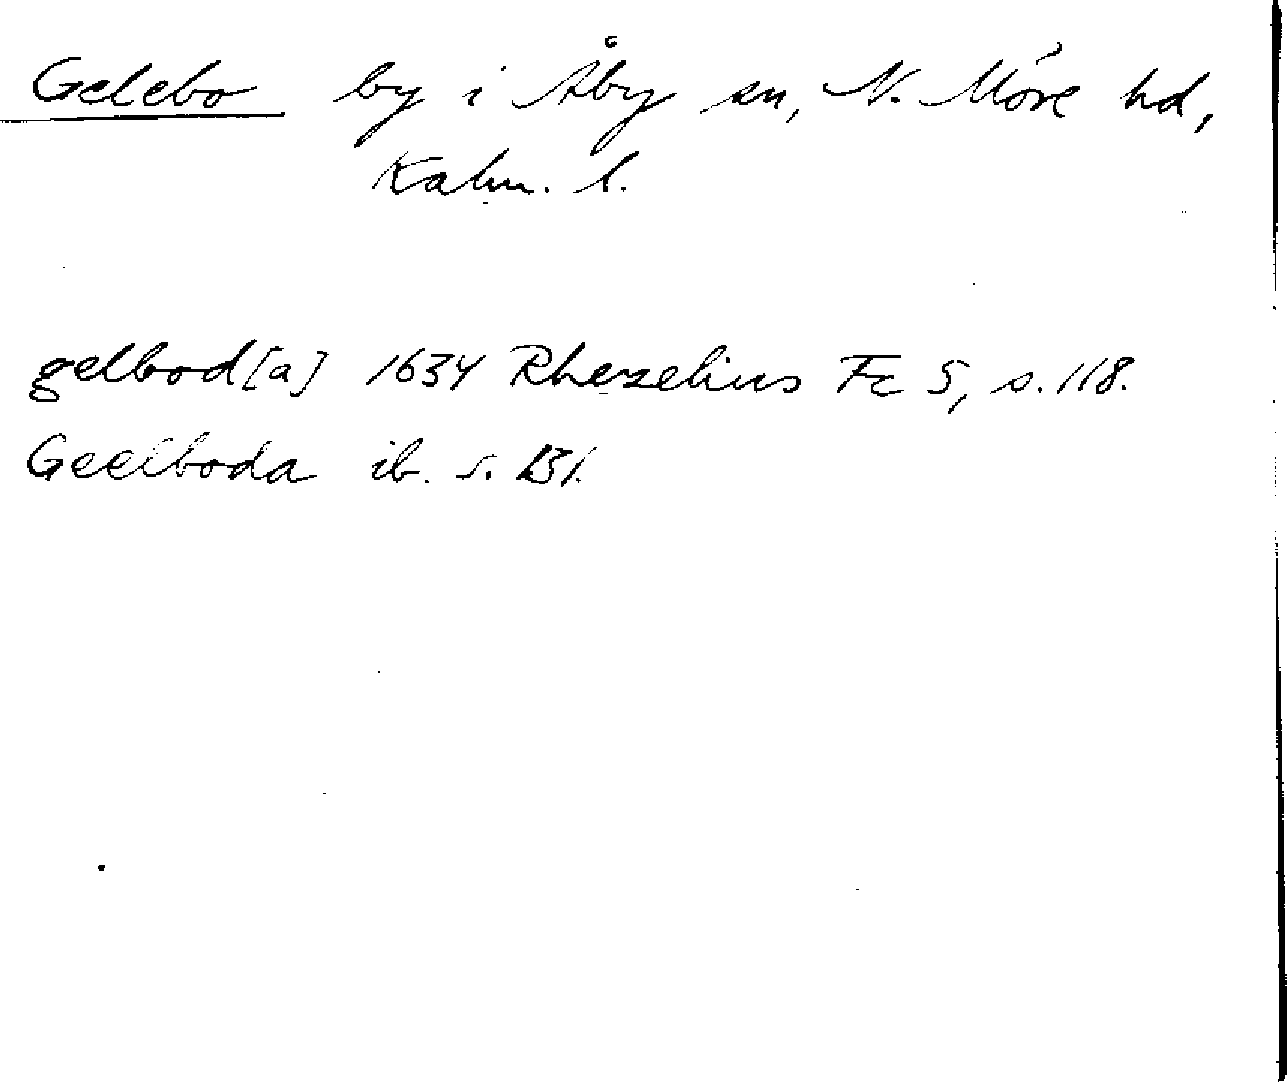 Gelebo by i Åby sn, N. Möre hd,
Kalm. l.
gelbod[a] 1634 Rhezelius Fc 5, s. 118.
Geelboda ib. s. 131.